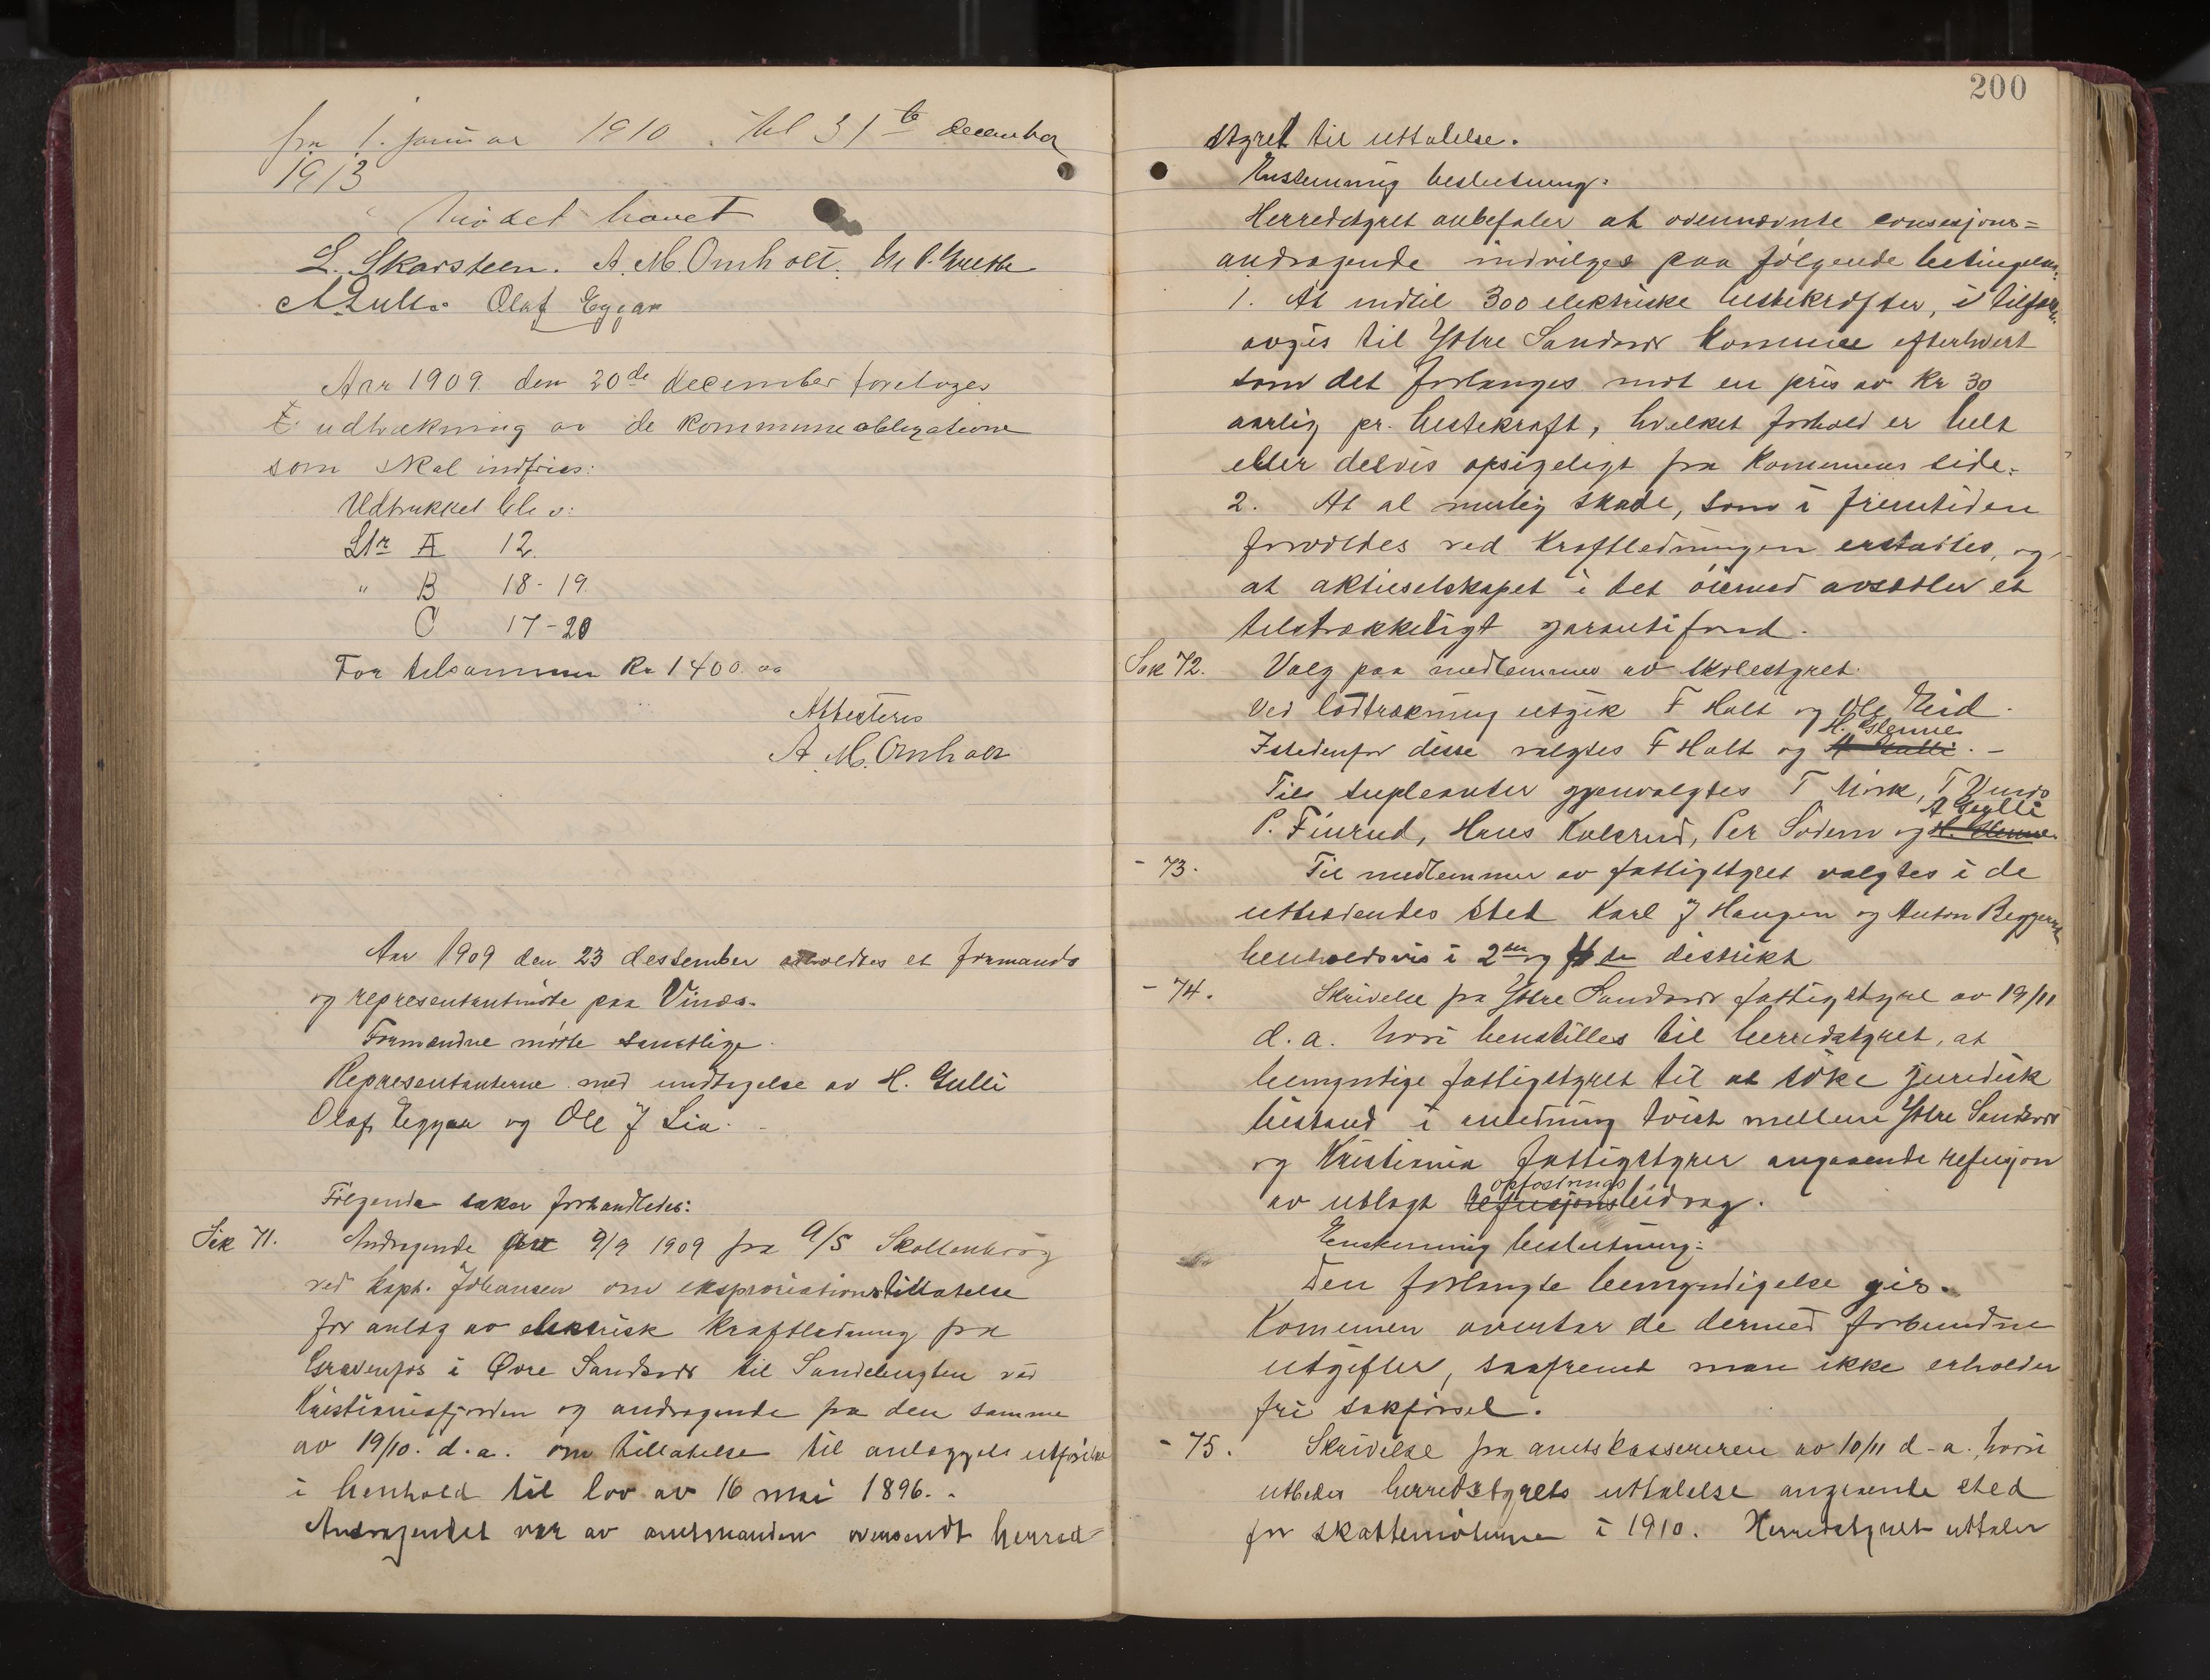 fra 1. januar 1910. til 31te december
1913
Mødet hævet
L. Skarsteen. A. M. Omholt.
A Gulli. Olaf Eggar
Aar 1909 den 20de december foretoges
udtrækning av de kommuneobligatione
som skal indfries:
Udtrukket blev:
Litr A 12.
" B 18-19.
C 17-20
For tilsammen Kr 1400.00
Attesteres
A. M. Omholt
Aar 1909 den 23 desember avholdtes et formands
og representantmöte paa Vinäs.
Formændne mötte samtlige.
Representanterne med undtagelse av H. Gulli
Olaf Eggar og Ole J Lia.
Fölgende saker forhandledes:
Sak 71. Andragende av 9/9 1909 fra A/S Skollenborg
ved kapt. Johansen om ekspropriationstillatelse
for anlæg av elektrisk kraftledning fra
Gravenfos i Øvre Sandsvær til Sandebugten ved
Kristianiafjorden og andragende fra den samme
av 19/10. d.a. om tillatelse til anlæggets utförelse
i henhold til lov av 16 mai 1896.
Andragendet var av amtmanden oversendt herred=
200
styret til uttalelse.
Enstemmig beslutning:
Herredstyret anbefaler at ovennævnte consesjons=
andragende indvilges paa fölgende betingelser:
1. At indtil 300 elektriske hestekræfter, i tilfælde
avgis til Ytre Sandsvær Kommune efterhvert
som det forlanges mot en pris av Kr 30
aarlig pr. hestekraft, hvilket forhold er helt
eller delvis opsigeligt fra Kommunens side.
2. At al mulig skade, som i fremtiden
forvoldes ved kraftledningen erstattes, og
at aktieselskapet i det öiemed avsætter et
tilstrækkeligt garantifond.
Sak 72. Valg paa medlemmer av skolestyret.
Ved lodtrækning utgik F Holt og Ole Eid.
H. Glenne
Istedenfor disse valgtes F Holt og A Gulli. -
Til supleanter gjenvalgtes T Mörk, T Vinäs
A Gulli
P. Finrud, Hans Kolsrud, Per Södem og H. Glenne
- 73. Til medlemmer av fattigstyret valgtes i de
uttrædendes sted Karl J Haugen og Anton Beggerud
henholdsvis i 2den og de distrikt
- 74. Skrivelse fra Ytre Sandsvær fattigstyre av 19/11
d.a. hvori henstilles til herredstyret, at
bemyndige fattigstyret til at söke juridisk
bistand i anledning tvist mellem Ytre Sandsvær
og Kristiania fattigstyrer angaaende refusjon
opfostrings
av utlagt refusjonsbidrag.
Enstemmig beslutning:
Den forlangte bemyndigelse gis.
Komunen overtar de dermed forbundne
utgifter, saafremt man ikke erholder
fri sakförsel.
- 75. Skrivelse fra amtskassereren av 10/11 d.a. hvori
utbedes herredstyrets uttalelse angaaende sted
for skattemöterne i 1910. Herredstyret uttaler